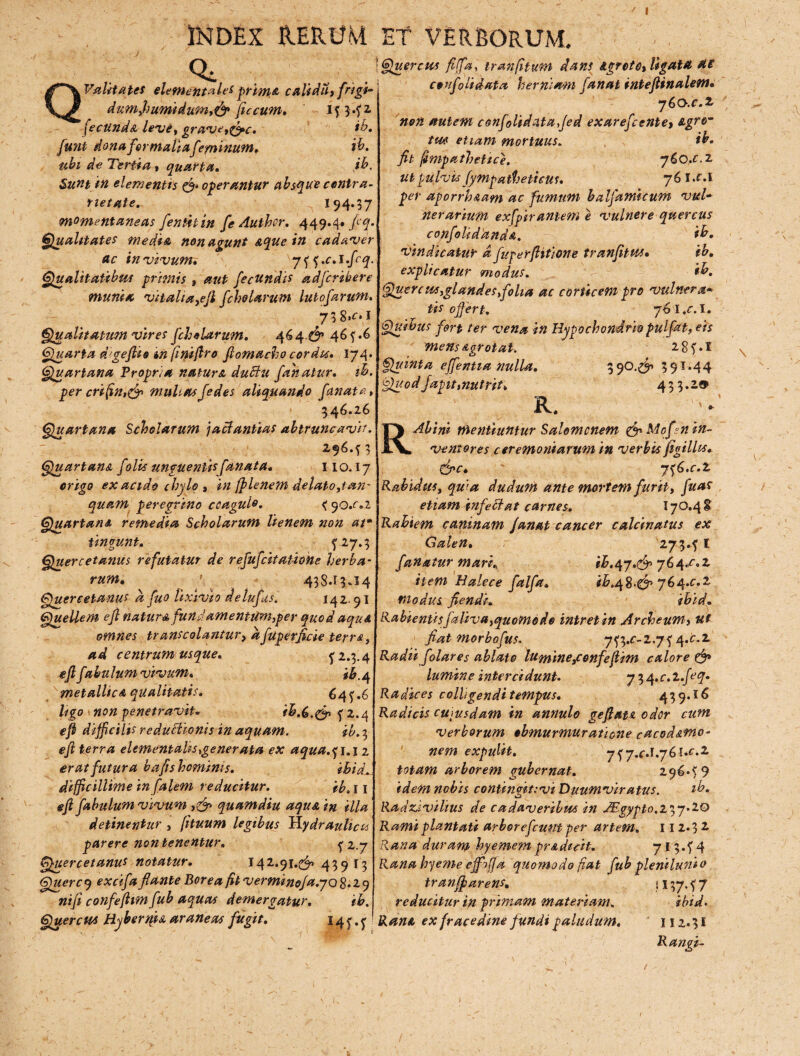 INDEX RERUM ET VERBORUM.
Q.
QValitates elementales primæ calidũ, frigi-
dum, humidum, & siccum. 153.52
secundæ leve, grave, &c. ib.
sunt dona formalia seminum. ib.
ubi de Tertia, quarta. ib.
Sunt in elementis & operantur absque contra-
rietate. 194.37
momentaneas sentit in se Author. 449.4. seq.
Qualitates mediæ non agunt æque in cadaver
ac in vivum. 755.c.1.seq.
Qualitatibus primis, aut secundis adscribere
munia vitalia, est scholarum lutosarum.
738.c.1
Qualitatum vires scholarum. 464.& 465.6
Quarta digestio in sinistro stomacho cordis. 174.
Quartana Propria naturæ ductu sanatur. ib.
per crisin, & multas sedes aliquando sanata,
346.26
Quartana Scholarum jactantias abtruncavit.
296.53
Quartanæ solis unguentis sanata. 110.17
origo ex acido chylo, in splenem delato, tan-
quam peregrino coagulo. 590.c.2
Quartanæ remedia Scholarum lienem non at-
tingunt. 527.3
Quercetanus refutatur de resuscitatione herba-
rum. 438.13.14
Quercetanus a suo lixivio delusus. 142.91
Quellem est naturæ fundamentum, per quod aquæ
omnes transcolantur, à superficie terræ,
ad centrum usque. 52.3.4
est sabulum vivum. ib.4
metallicæ qualitatis. 645.6
ligo non penetravit. ib.6.& 52.4
est difficilis reductionis in aquam. ib.3
est terra elementalis, generata ex aqua. 51.12
erat futura basis hominis. ibid.
difficillime in salem reducitur. ib.11
est sabulum vivum, & quamdiu aquæ in illa
detinentur, situum legibus Hydraulicis
parere non tenentur. 52.7
Quercetanus notatur. 142.91.& 439 13
Querc9 excisa flante Borea fit verminosa. 708.29
nisi confestim sub aquas demergatur. ib.
Quercus Hyberniæ araneas fugit. 145.5
Quercus fissa, transitum dans ægroto, ligata ac
consolidata herniam sanat intestinalem.
760.c.2
non autem consolidata, sed exarescente, ægro-
tus etiam mortuus. ib.
fit simpathetice. 760.c.2
ut pulvis sympatheticus. 761.c.1
per aporrhæam ac fumum balsamicum vul-
nerarium exspirantem è vulnere quercus
consolidandæ. ib.
vindicatur à superstitione transitus. ib.
explicatur modus. ib.
Quercus, glandes, folia ac corticem pro vulnera-
tis offert. 761.c.1.
Quibus fort ter vena in Hypochondrio pulsat, eis
mens ægrotat. 285.1
Quinta essentia nulla. 390.& 391.44
Quod sapit, nutrit. 433.20
R.
RAbini mentiuntur Salomonem & Mosen in-
ventores ceremoniarum in verbis sigillis.
&c. 756.c.2
Rabidus, quia dudum ante mortem furit, suas
etiam infectat carnes. 170.48
Rabiem caninam sanat cancer calcinatus ex
Galen. 273.51
sanatur mari. ib.47.& 764.c.2
item Halece salsa. ib.48.& 764.c.2
modus fiendi. ibid.
Rabientis saliva, quomodo intret in Archeum, ut
fiat morbosus. 753.c.2.754.c.2
Radii solares ablato lumine, confestim calore &
lumine intercidunt. 734.c.2.seq.
Radices colligendi tempus. 439.16
Radicis cujusdam in annulo gestatæ odor cum
verborum obmurmuratione cacodæmo-
nem expulit. 757.c.1.761.c.2
totam arborem gubernat. 296.59
idem nobis contingit: vi Duumviratus. ib.
Radzivilius de cadaveribus in Ægypto. 237.20
Rami plantati arborescunt per artem. 112.32
Rana duram hyemem prædicit. 713.54
Rana hyeme effossa quomodo fiat sub plenilunio
transparens. 1137.57
reducitur in primam materiam. ibid.
Ranæ ex fracedine fundi paludum. 112.31
Rangi-